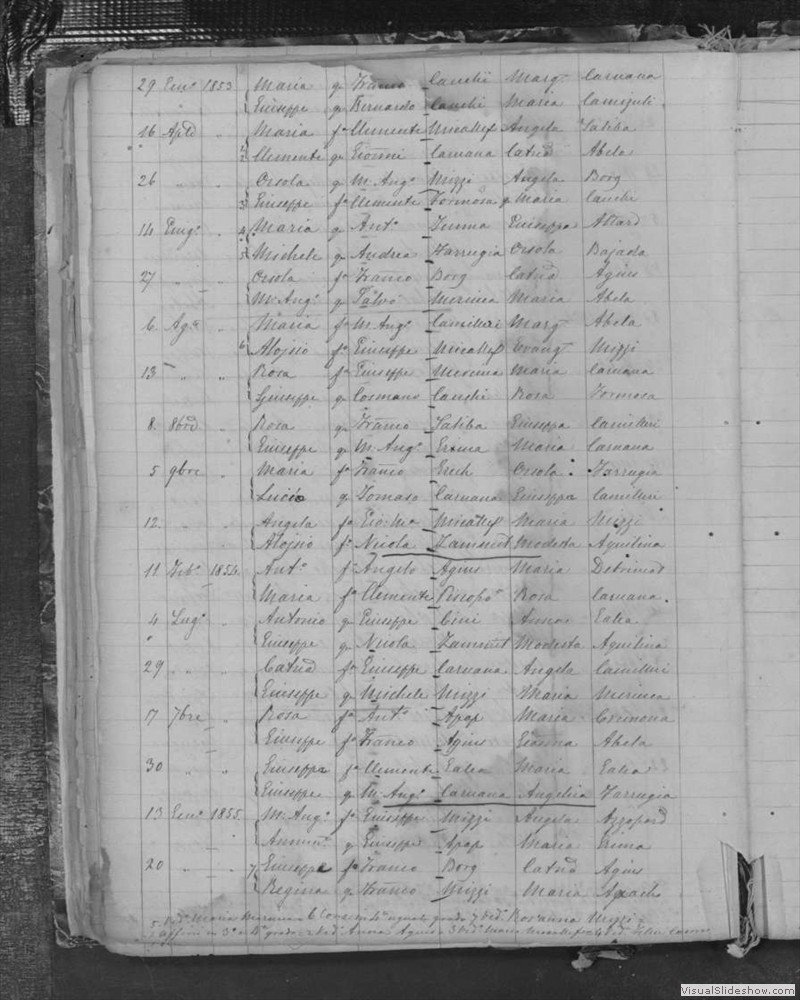 29 Enn.º 1853 Maria q Franco Cauchi Marg.ª Caruana
Giuseppe q Bernardo Cauchi Maria Camenzuli
16 Aple " Maria f.ª Clemente Micallef Angela Saliba
2 Clemente q Gioanni Caruana Catna Abela
26 " " Orsola q M. Ang.º Mizzi Angela Borg
3 Giuseppe f.º Clemente Formosa q Maria Cauchi
14 Giug.º 4 Maria q Ant.º Zumma Giuseppa Attard
5 Michele q Andrea Farrugia Orsola Bajada
27 " " Orsola f.ª Franco Borg Catna Agius
M. Ang.º q Salvo Mercieca Maria Abela
6 Ag.º " Maria f.ª M. Ang.º Camilleri Marg.ª Abela
6 Alojsio f.º Giuseppe Micallef Evang.ª Mizzi
13 " " Rosa f.ª Giuseppe Maria Caruana
Giuseppe q Cosmano Cauchi Rosa Formosa
8 8bre " Rosa q Franco Saliba Giuseppa Camilleri
Giuseppe q M. Ang.º Maria Caruana
5 9bre " Maria f.ª Franco Grech Orsola Farrugia
Lucio q Tomaso Caruana Giuseppa Camilleri
12. " " Angela f.ª Gio: M.ª Micallef Maria Mizzi
Alojsio f.º Nicola Zammit Modesta Aquilina
11 Feb.º 1854. Ant.º f.º Angelo Agius Maria
Maria f.ª Clemente Rosa Caruana
4 Lug.º " Antonio q Giuseppe Cini Galea
" Giuseppe q Nicola Zammit Modesta Aquilina
29 " " Catna f.ª Giuseppe Caruana Angela Camilleri
Giuseppe q Michele Mizzi Maria Mercieca
17 7bre " Rosa f.ª Ant.º Apap Maria Cremona
Giuseppe f.º Franco Agius Gioanna Abela
30 " " Giuseppa f.ª Clemente Galea Maria Galea
Giuseppe q M. Ang.º Caruana Angelica Farrugia
13 Enn.º 1855. M. Ang.º f.º Giuseppe Mizzi Angela Azzopard
q Giuseppe Apap Maria
20 " " 7 Giuseppe f.º Franco Borg Catna Agius
Regina q Franco Mizzi Maria
Maria 6 grado 7 Ved.ª Rosanna Mizzi
Affini 3º grado Ved.ª Anna Agius 3 Ved.ª Maria
VisualSlideshow.com